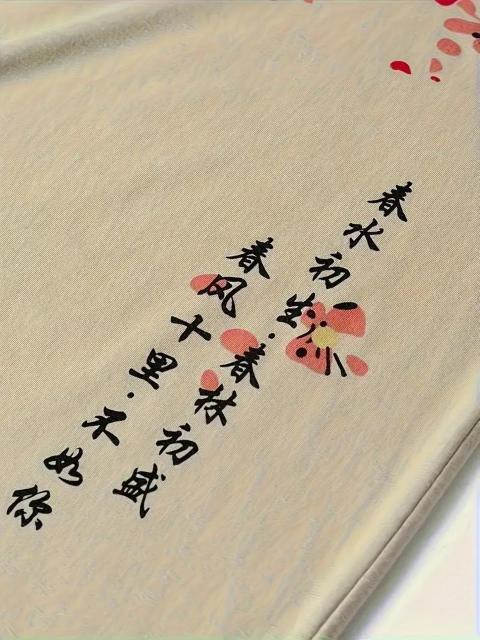 春水初生·春林初盛
春风十里·不如你